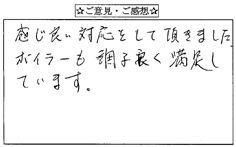 ☆ご意見・ご感想☆
感じ良い対応をして頂きました。
ボイラーも調子良く満足し
ています。